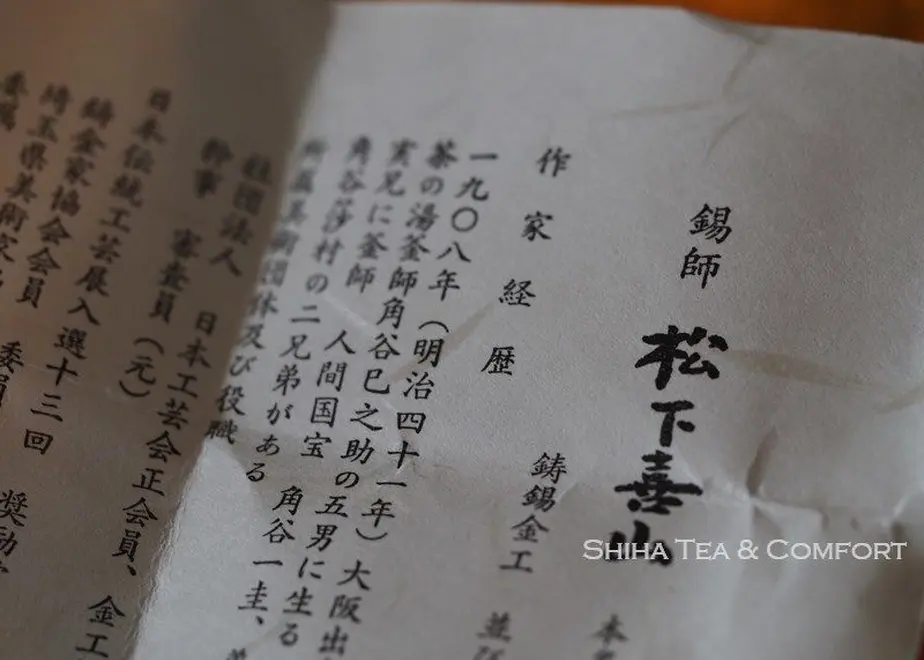 錫師 松下喜山
本
作家経歴
鋳錫金工 並び
一九〇八年(明治四十一年)大阪出
茶の湯釜師角谷巳之助の五男に生る
実兄に釜師 人間国宝 角谷一圭、
角谷莎村の二兄弟がある
所属美術団体及び役職
社団法人 日本工芸会正会員、金工
幹事 審査員(元)
日本伝統工芸展入選十三回 奨励
鋳金家協会会員 委員
埼玉県美術家
SHIHA TEA & COMFORT